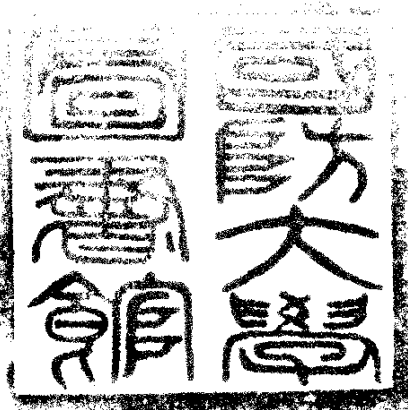 國防大學
圖書館